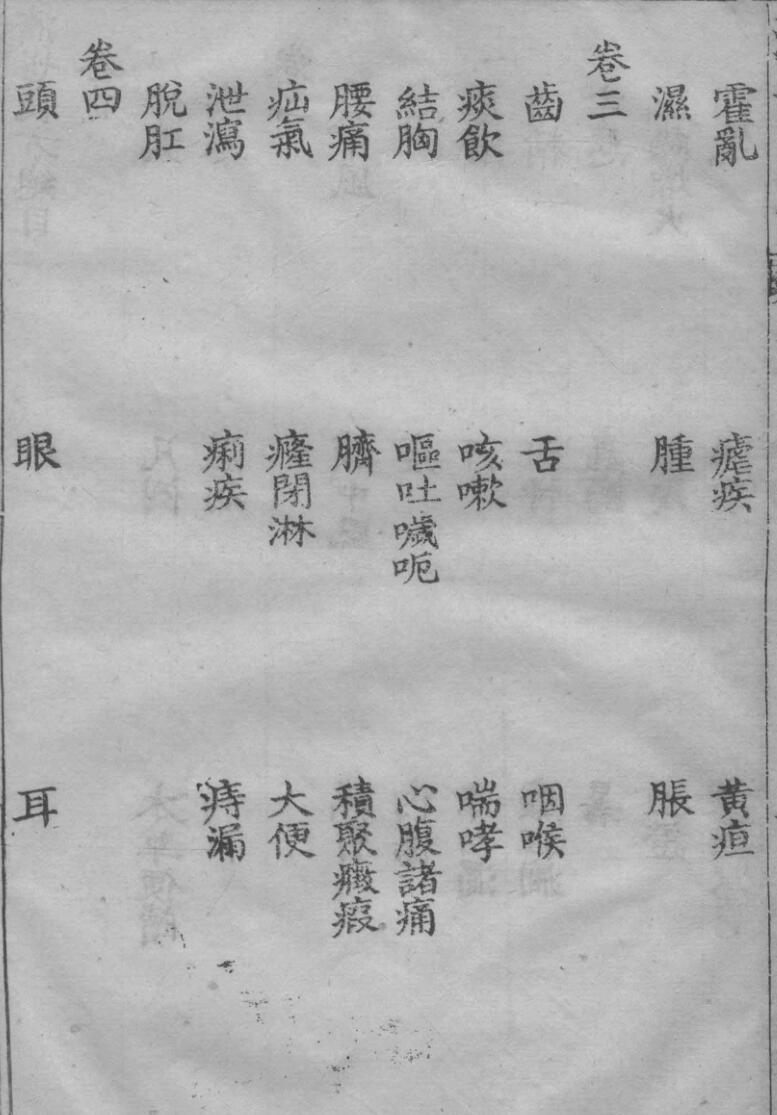 霍亂 瘧疾 黃疸
濕 腫 脹
卷三
齒 舌 咽喉
痰飲 咳嗽 喘哮
結胸 嘔吐噦呃 心腹諸痛
腰痛 臍 積聚癥瘕
疝氣 癃閉淋 大便
泄瀉 痢疾 痔漏
脫肛
卷四
頭 眼 耳